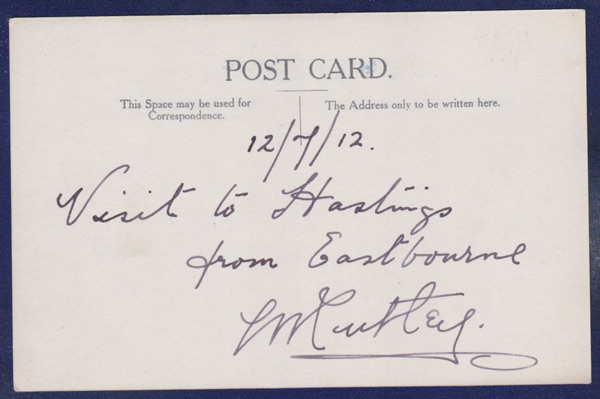 POST CARD.
This Space may be used for Correspondence.
The Address only to be written here.
12/7/12.
Visit to Hastings
from Eastbourne